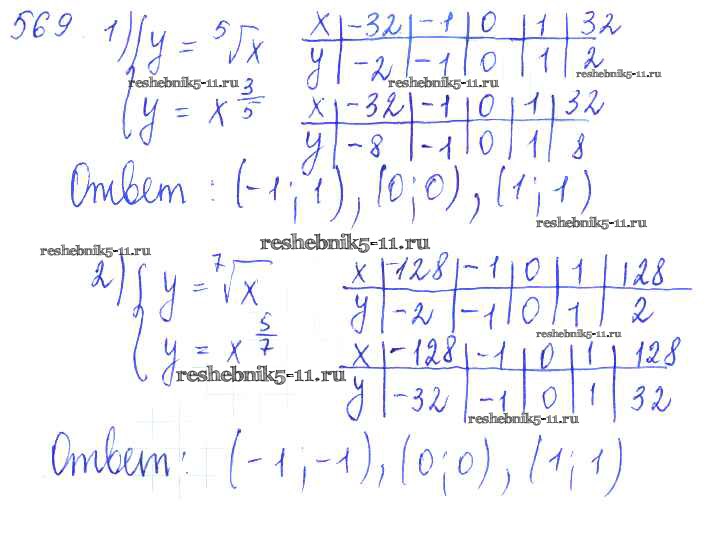 569 1) { y = ⁵√x x | -32 | -1 | 0 | 1 | 32
y | -2 | -1 | 0 | 1 | 2
reshebnik5-11.ru reshebnik5-11.ru reshebnik5-11.ru
y = x^(3/5) x | -32 | -1 | 0 | 1 | 32
y | -8 | -1 | 0 | 1 | 8
Ответ : (-1; 1), (0; 0), (1; 1)
reshebnik5-11.ru
reshebnik5-11.ru
reshebnik5-11.ru
2) { y = ⁷√x x | -128 | -1 | 0 | 1 | 128
y | -2 | -1 | 0 | 1 | 2
reshebnik5-11.ru
y = x^(5/7) x | -128 | -1 | 0 | 1 | 128
reshebnik5-11.ru
y | -32 | -1 | 0 | 1 | 32
reshebnik5-11.ru
Ответ: (-1; -1), (0; 0), (1; 1)